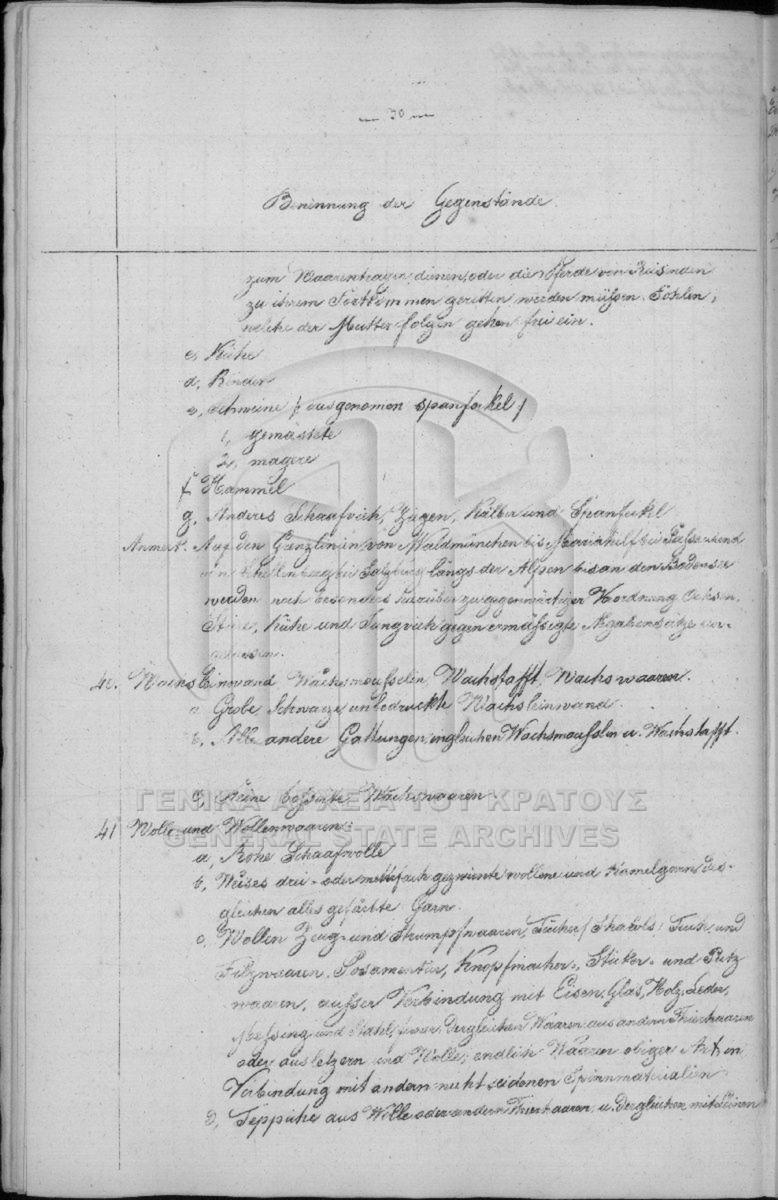 — 70 —
Benennung der Gegenstände
zum Waarentragen dienen, oder die Pferde von Reisenden
zu ihrem Fortkommen geritten werden müssen. Fohlen,
welche der Mutter folgen gehen frei ein.
c, Kühe
d, Rinder
e, Schweine (ausgenomen Spanferkel)
1, gemästete
2, magere
f Hammel
g, Anderes Schaafvieh, Ziegen, Kälber und Spanferkel
Anmerk. Auf den Grenzlinien von Waldmünchen bis Mariahilf bei
längs der Alpen bis an den Bodensee
werden noch besonders zu gegenwärtiger Verordnung Ochsen,
Stiere, Kühe und Jungvieh gegen ermässigte
40. Wachsleinwand Wachsmousselin, Wachstafft, Wachswaaren.
a Grobe Schwarze unbedruckte Wachsleinwand
b, Alle andere Gattungen ingleichen Wachsmousslin u. Wachstafft.
c, Feine Wachswaaren
ΓΕΝΙΚΑ ΑΡΧΕΙΑ ΤΟΥ ΚΡΑΤΟΥΣ
41 Wolle und Wollenwaaren:
GENERAL STATE ARCHIVES
a, Rohe Schaafwolle
b, Weises drei- oder mehrfach gezwirnte wollene und Kamelgarn des-
gleichen alles gefärbte Garn.
c, Wollen Zeug- und Strumpfwaaren, Tücher (Shawls) Tuch und
Filzwaaren, Posamentier, Knopfmacher-, Sticker- und Putz
waaren, ausser Verbindung mit Eisen, Glas, Holz, Leder,
Messing und Stahl, ferner dergleichen Waaren aus andern Thierhaaren
oder aus letzern und Wolle; endlich Waaren obiger Art in
Verbindung mit andern nicht seidenen Spinnmaterialien
d, Teppiche aus Wolle oder andern Thierhaaren u. dergleichen mit Leinen